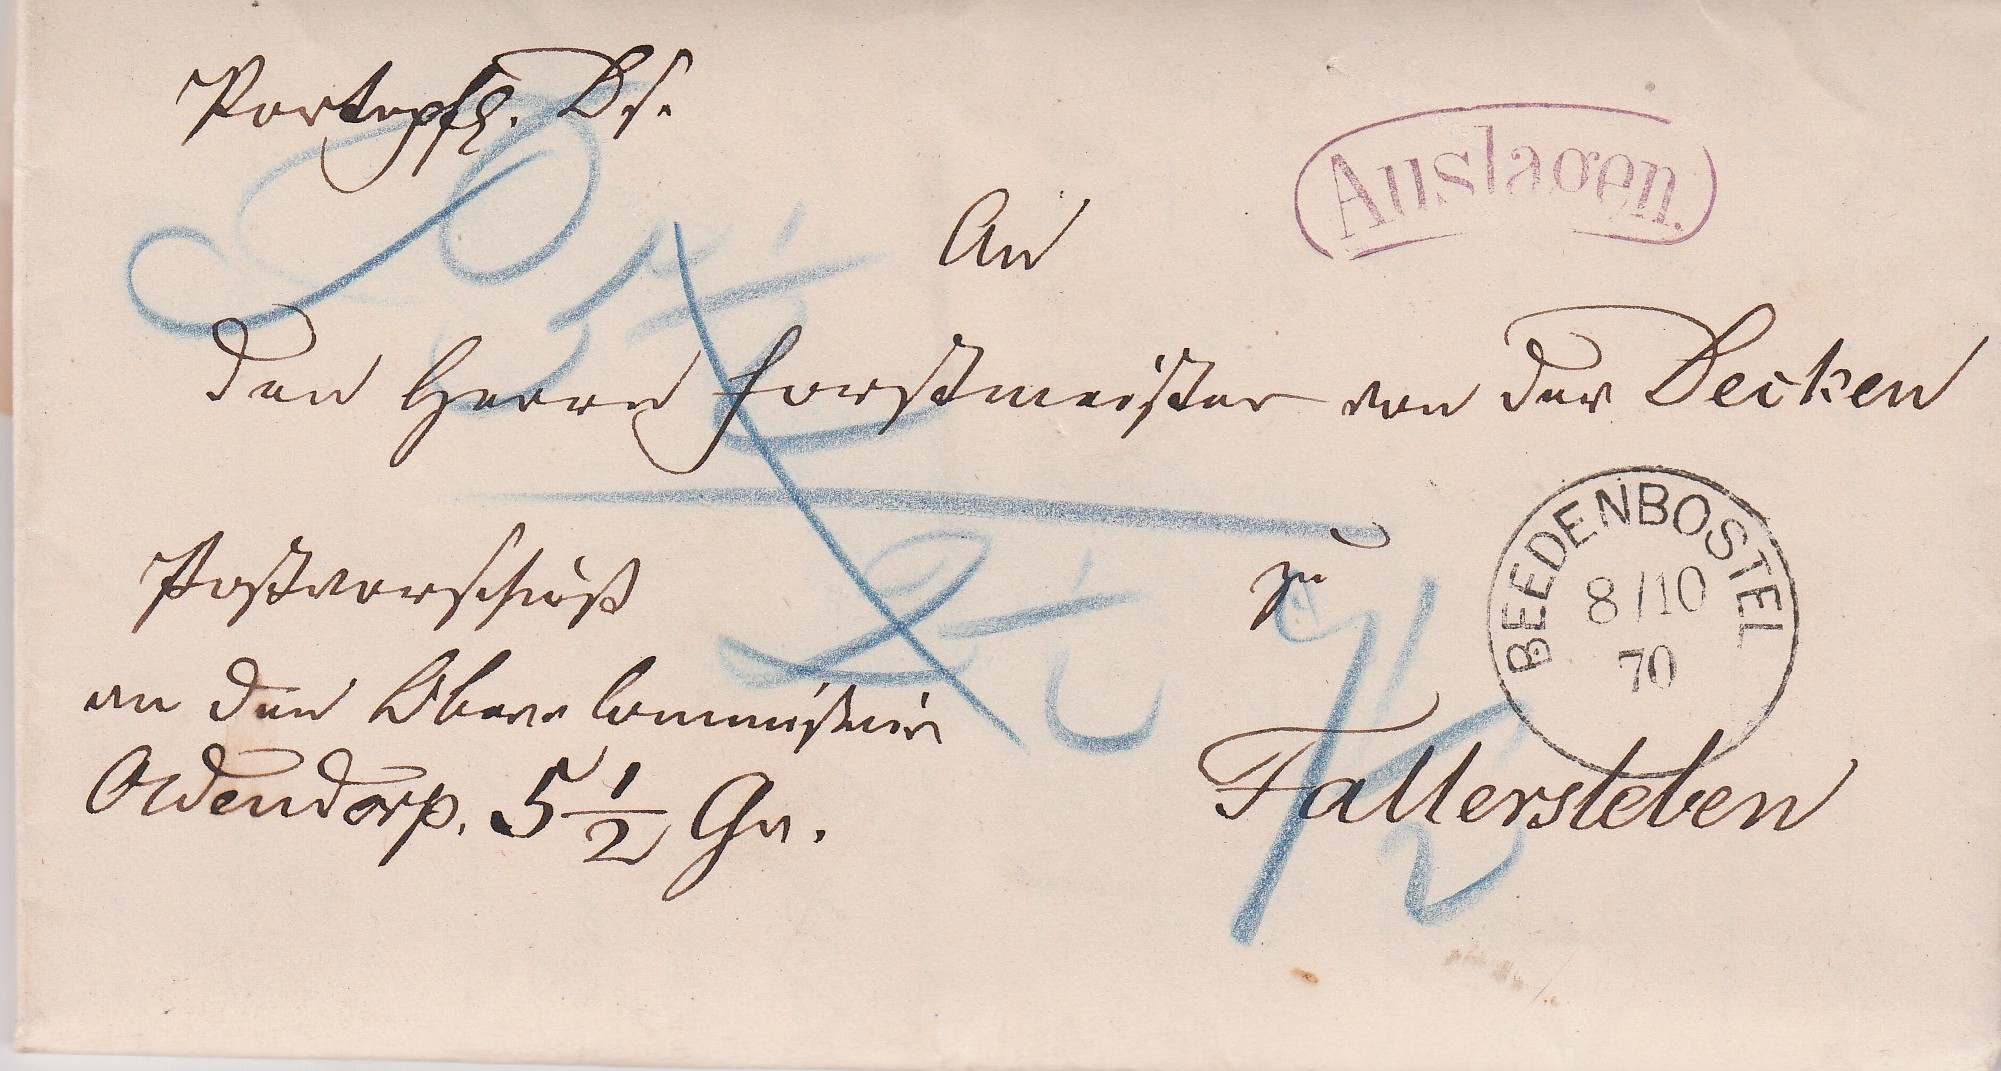 Portopfl. Ds.
Auslagen.
An
den Herrn Forstmeister von der Decken
BEEDENBOSTEL
8/10
70
zu
Fallersleben
Postvorschuß
an den
Oldendorp. 5 1/2 Gr.